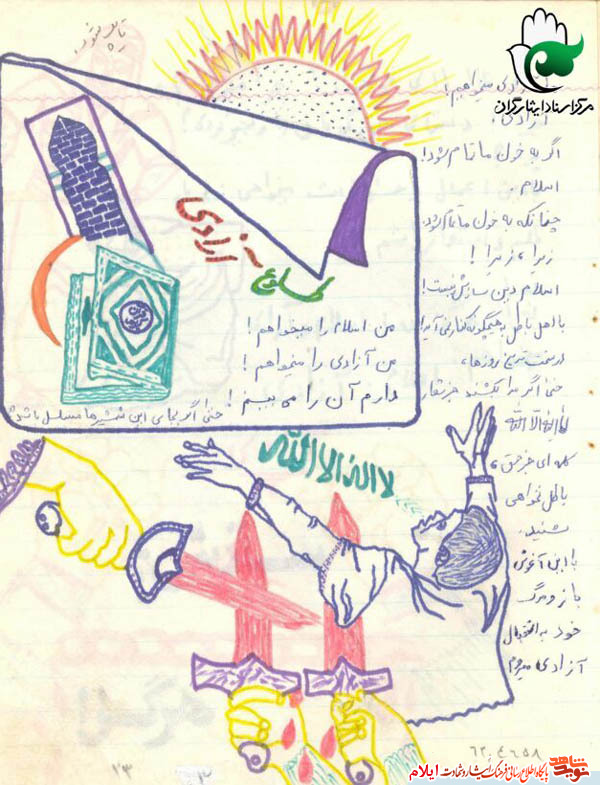 مرکز اسناد ایثارگران
آزادی،
اگر به خون ما تمام شود!
اسلام.
چنانکه به خون ما تمام شود
زیرا، زیرا!
اسلام دین سازش نیست!
با اهل باطل به هیچگونه کنار نمی آید!
در سخت ترین روزها،
حتی اگر مرا بکشند جز شعار
لا اله الا الله
کلمه ای جز حق،
باطل نخواهی
شنید.
با این آغوش
باز و مرگ
خود به استقبال
آزادی میروم
آزادی
اسلام
من اسلام را میخواهم!
من آزادی را میخواهم!
دارم آن را می بینم!
حتی اگر بجای این شمشیرها مسلسل باشد!
لا اله الا الله
۶۲.۴.۲۵۸
۲۳
نوید شاهد
پایگاه اطلاع رسانی فرهنگ ایثار و شهادت ایلام